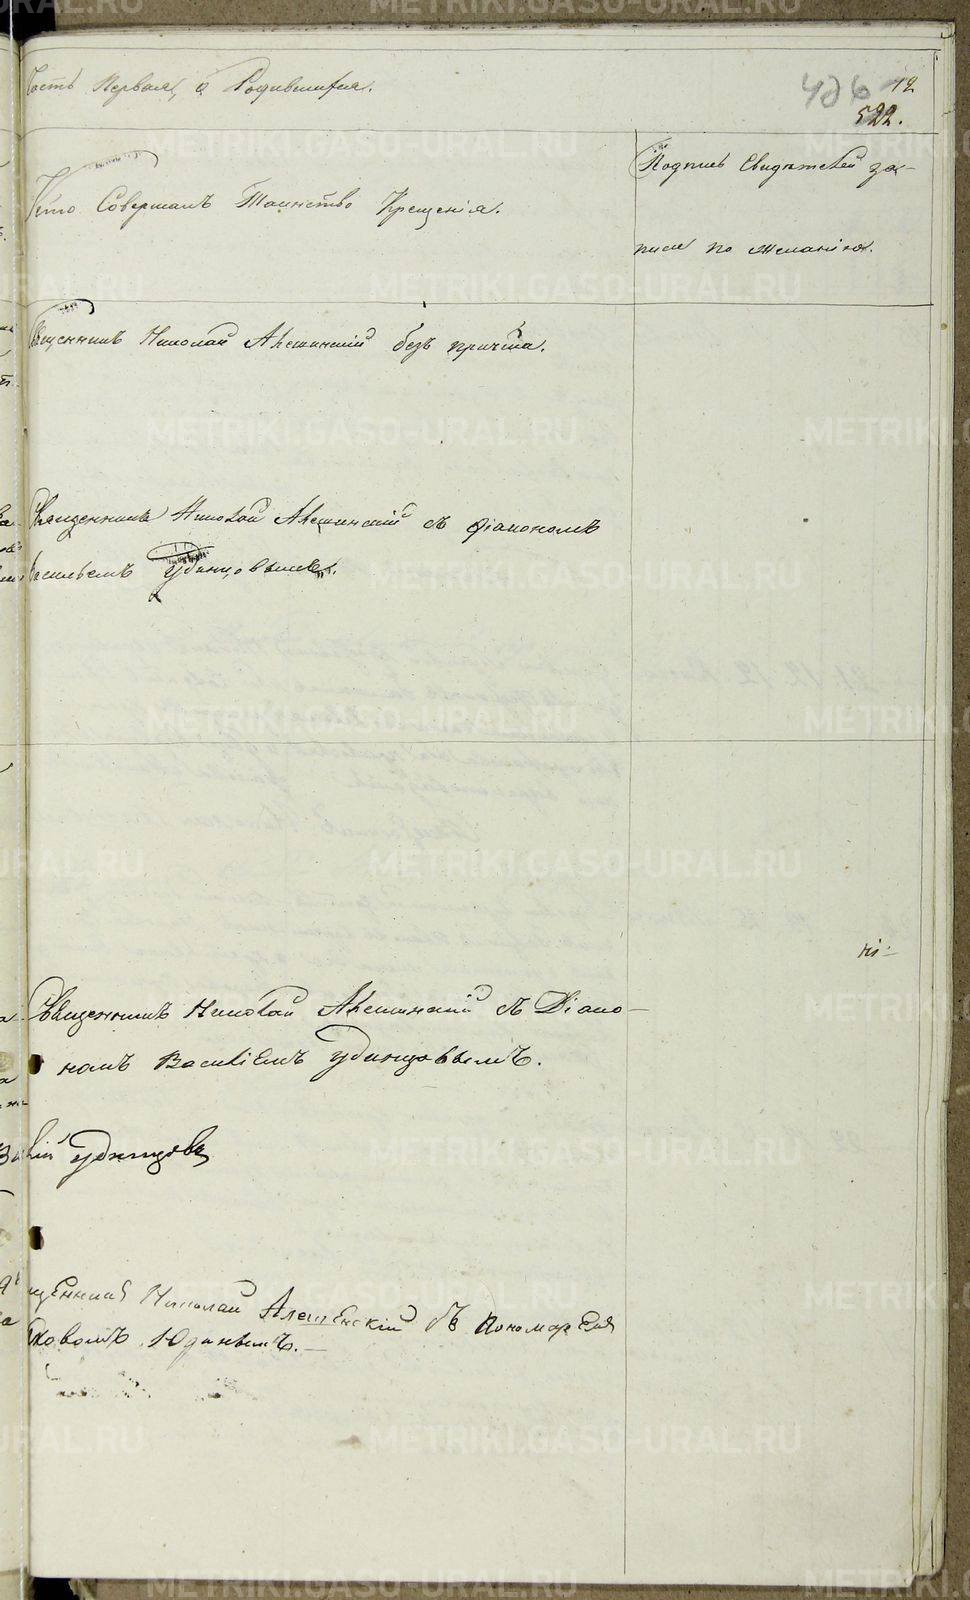 Часть Первая, о Родившихся.
426 12
522.
Кто Совершалъ Таинство Крещенія.
Подпись Свидѣтелей за-
писи по желанію.
Священникъ Николай Алешинскій безъ причта.
Священникъ Николай Алешинскій съ Діакономъ
Васильемъ Удинцовымъ.
Священникъ Николай Алешинскій съ Діако-
номъ Василіемъ Удинцовымъ.
Удинцовъ
Николай Алешенскій съ Пономаремъ
Яковомъ Юдинымъ.
METRIKI.GASO-URAL.RU